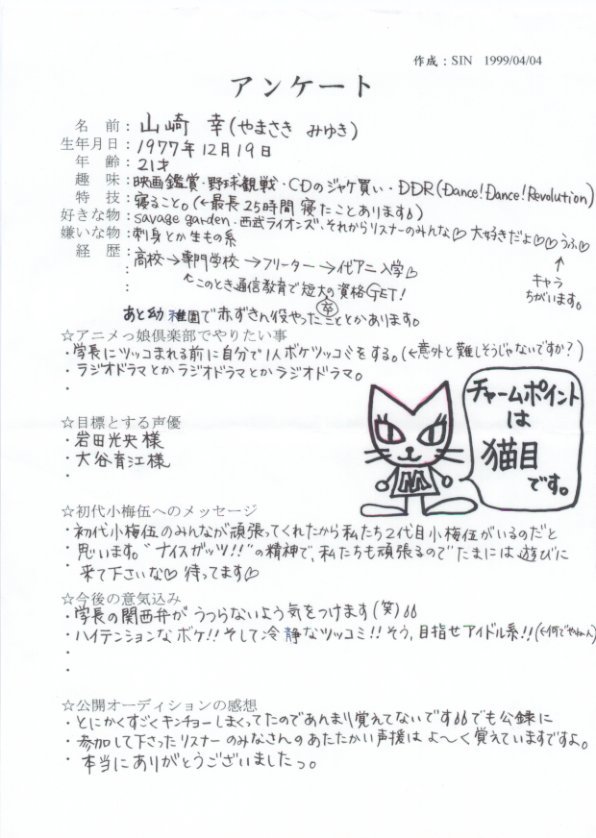 作成：SIN 1999/04/04
アンケート
名 前：山崎 幸(やまさき みゆき)
生年月日：1977年12月19日
年 齢：21才
趣 味：映画鑑賞・野球観戦・CDのジャケ買い・DDR(Dance!Dance!Revolution)
特 技：寝ること。(←最長25時間寝たことあります)
好きな物：savage garden・西武ライオンズ、それからリスナーのみんな♡ 大好きだよ♡♡うふ♡
↑
キャラ
ちがいます。
嫌いな物：刺身とか生もの系
経 歴：高校→専門学校→フリーター→代アニ入学♡
：↖このとき通信教育で短大の資格GET!
卒
：あと幼稚園で赤ずきん役やったこととかあります。
☆アニメっ娘倶楽部でやりたい事
・学長にツッコまれる前に自分で1人ボケツッコミをする。(←意外と難しそうじゃないですか？)
・ラジオドラマとかラジオドラマとかラジオドラマ。
・
☆目標とする声優
・岩田光央様
・大谷育江様
・
チャームポイント
は
猫目
です。
M
☆初代小梅伍へのメッセージ
・初代小梅伍のみんなが頑張ってくれたから私たち2代目小梅伍がいるのだと
・思います。“ナイスガッツ!!”の精神で、私たちも頑張るのでたまには遊びに
・来て下さいな♡ 待ってます♡
☆今後の意気込み
・学長の関西弁がうつらないよう気をつけます(笑)
・ハイテンションなボケ!!そして冷静なツッコミ!!そう,目指せアイドル系!!(←何でやねん)
・
・
☆公開オーディションの感想
・とにかくすごくキンチョーしまくってたのであんまり覚えてないですでも公録に
・参加して下さったリスナーのみなさんのあたたかい声援はよ〜く覚えていますですよ。
・本当にありがとうございましたっ。